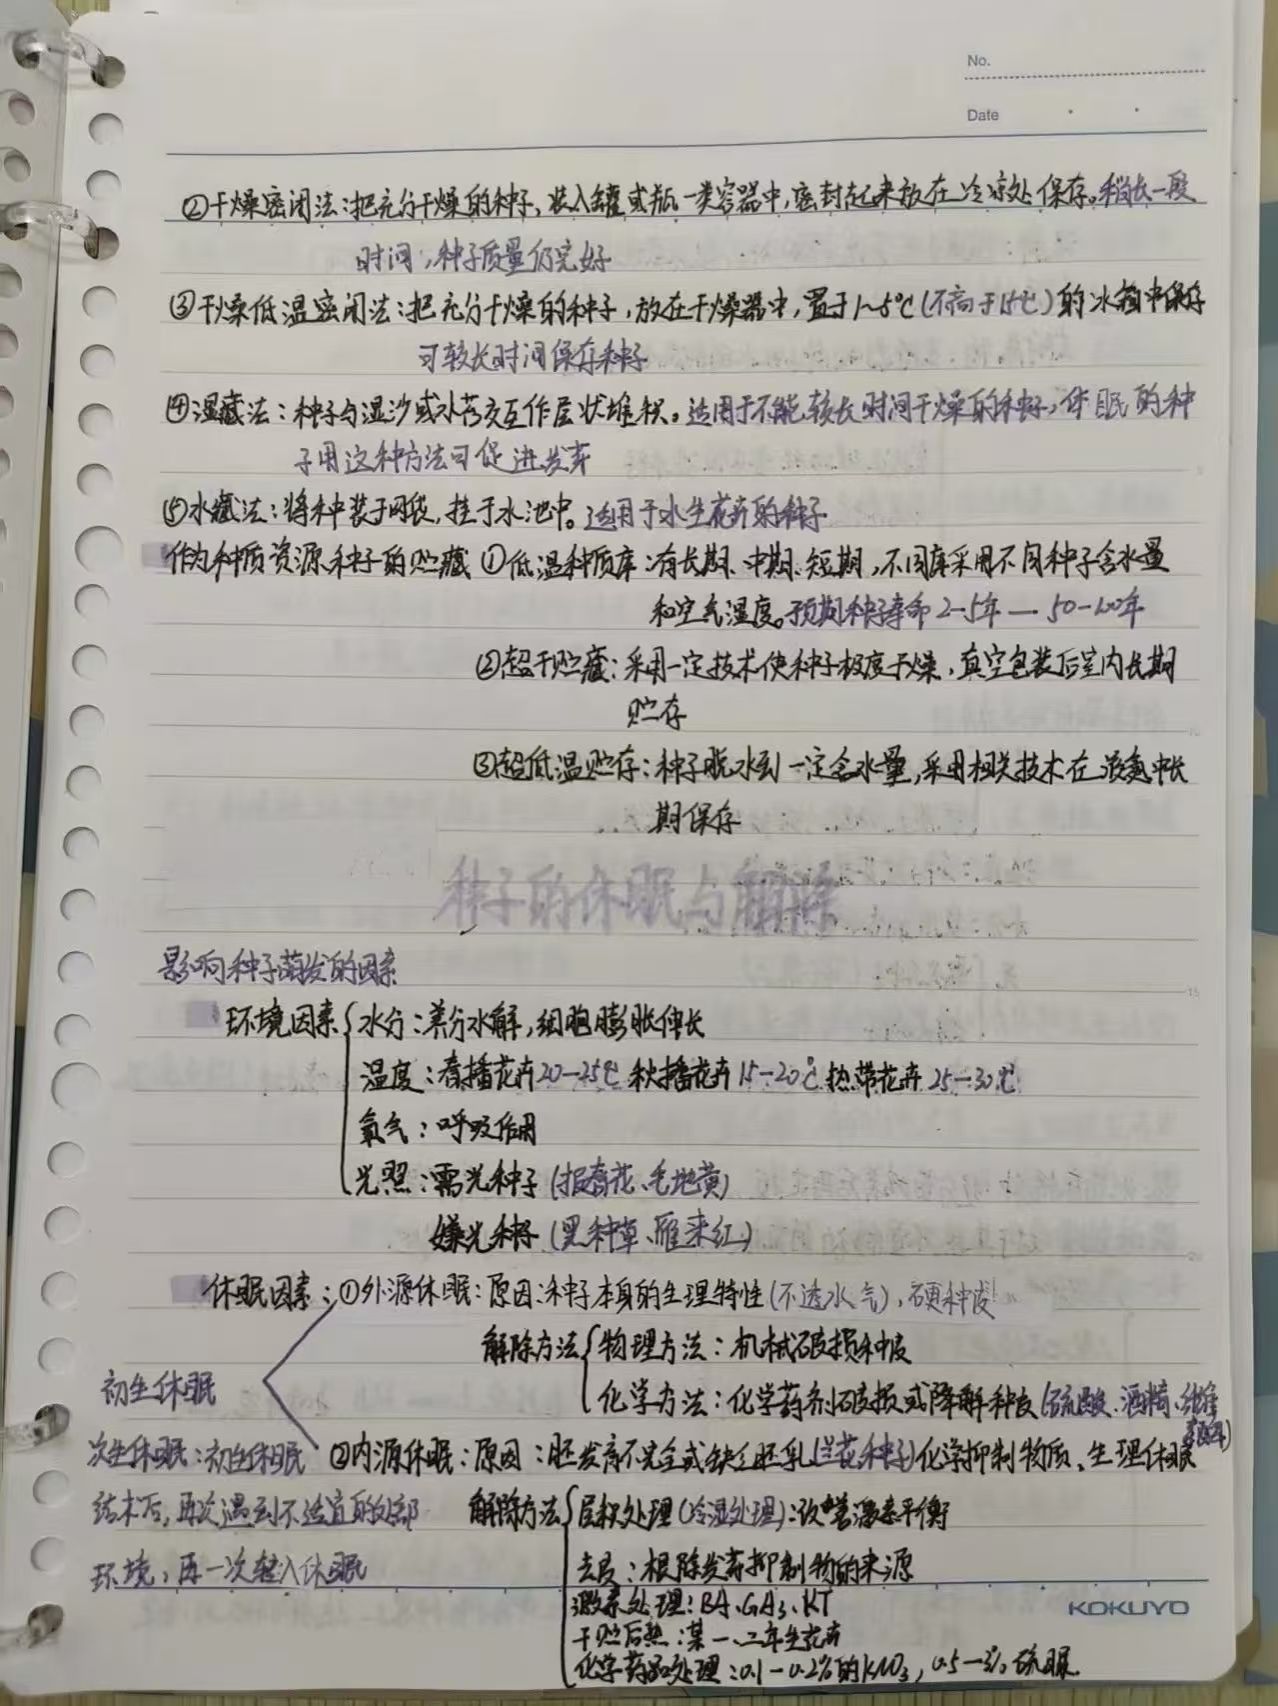 No.
Date
②干燥密闭法:把充分干燥的种子,装入罐或瓶一类容器中,密封起来放在冷凉处保存。稍长一段
时间,种子质量仍完好
③干燥低温密闭法:把充分干燥的种子,放在干燥器中,置于1~5℃(不高于15℃)的冰箱中保存
可较长时间保存种子
④湿藏法:种子与湿沙或水苔交互作层状堆积。适用于不能较长时间干燥的种子,休眠的种
子用这种方法可促进发芽
⑤水藏法:将种装于网袋,挂于水池中。适用于水生花卉的种子
作为种质资源种子的贮藏 ①低温种质库:有长期、中期、短期,不同库采用不同种子含水量
和空气湿度。预期种子寿命2-5年—50-100年
②超干贮藏:采用一定技术使种子极度干燥,真空包装后室内长期
贮存
③超低温贮存:种子脱水到一定含水量,采用相关技术在液氮中长
期保存
种子的休眠与解除
影响种子萌发的因素
环境因素 水分:养分水解,细胞膨胀伸长
温度:春播花卉20-25℃ 秋播花卉15-20℃ 热带花卉25-30℃
氧气:呼吸作用
光照:需光种子(报春花、毛地黄)
嫌光种子(黑种草、雁来红)
休眠因素:①外源休眠:原因:种子本身的生理特性(不透水气),硬种皮
解除方法 物理方法:机械破损种皮
初生休眠 化学方法:化学药剂破损或降解种皮(硫酸、酒精、纤维素酶)
次生休眠:初生休眠 ②内源休眠:原因:胚发育不完全或缺乏胚乳(兰花种子)化学抑制物质、生理休眠
结束后,再次遇到不适宜的外部 解除方法 层积处理(冷湿处理):改善激素平衡
环境,再一次转入休眠 去皮:根除发芽抑制物的来源
KOKUYO
激素处理:BA、GA3、KT
干贮后熟:某一、二年生花卉
化学药品处理:0.1-0.2%的KNO3,0.5-3%硫脲